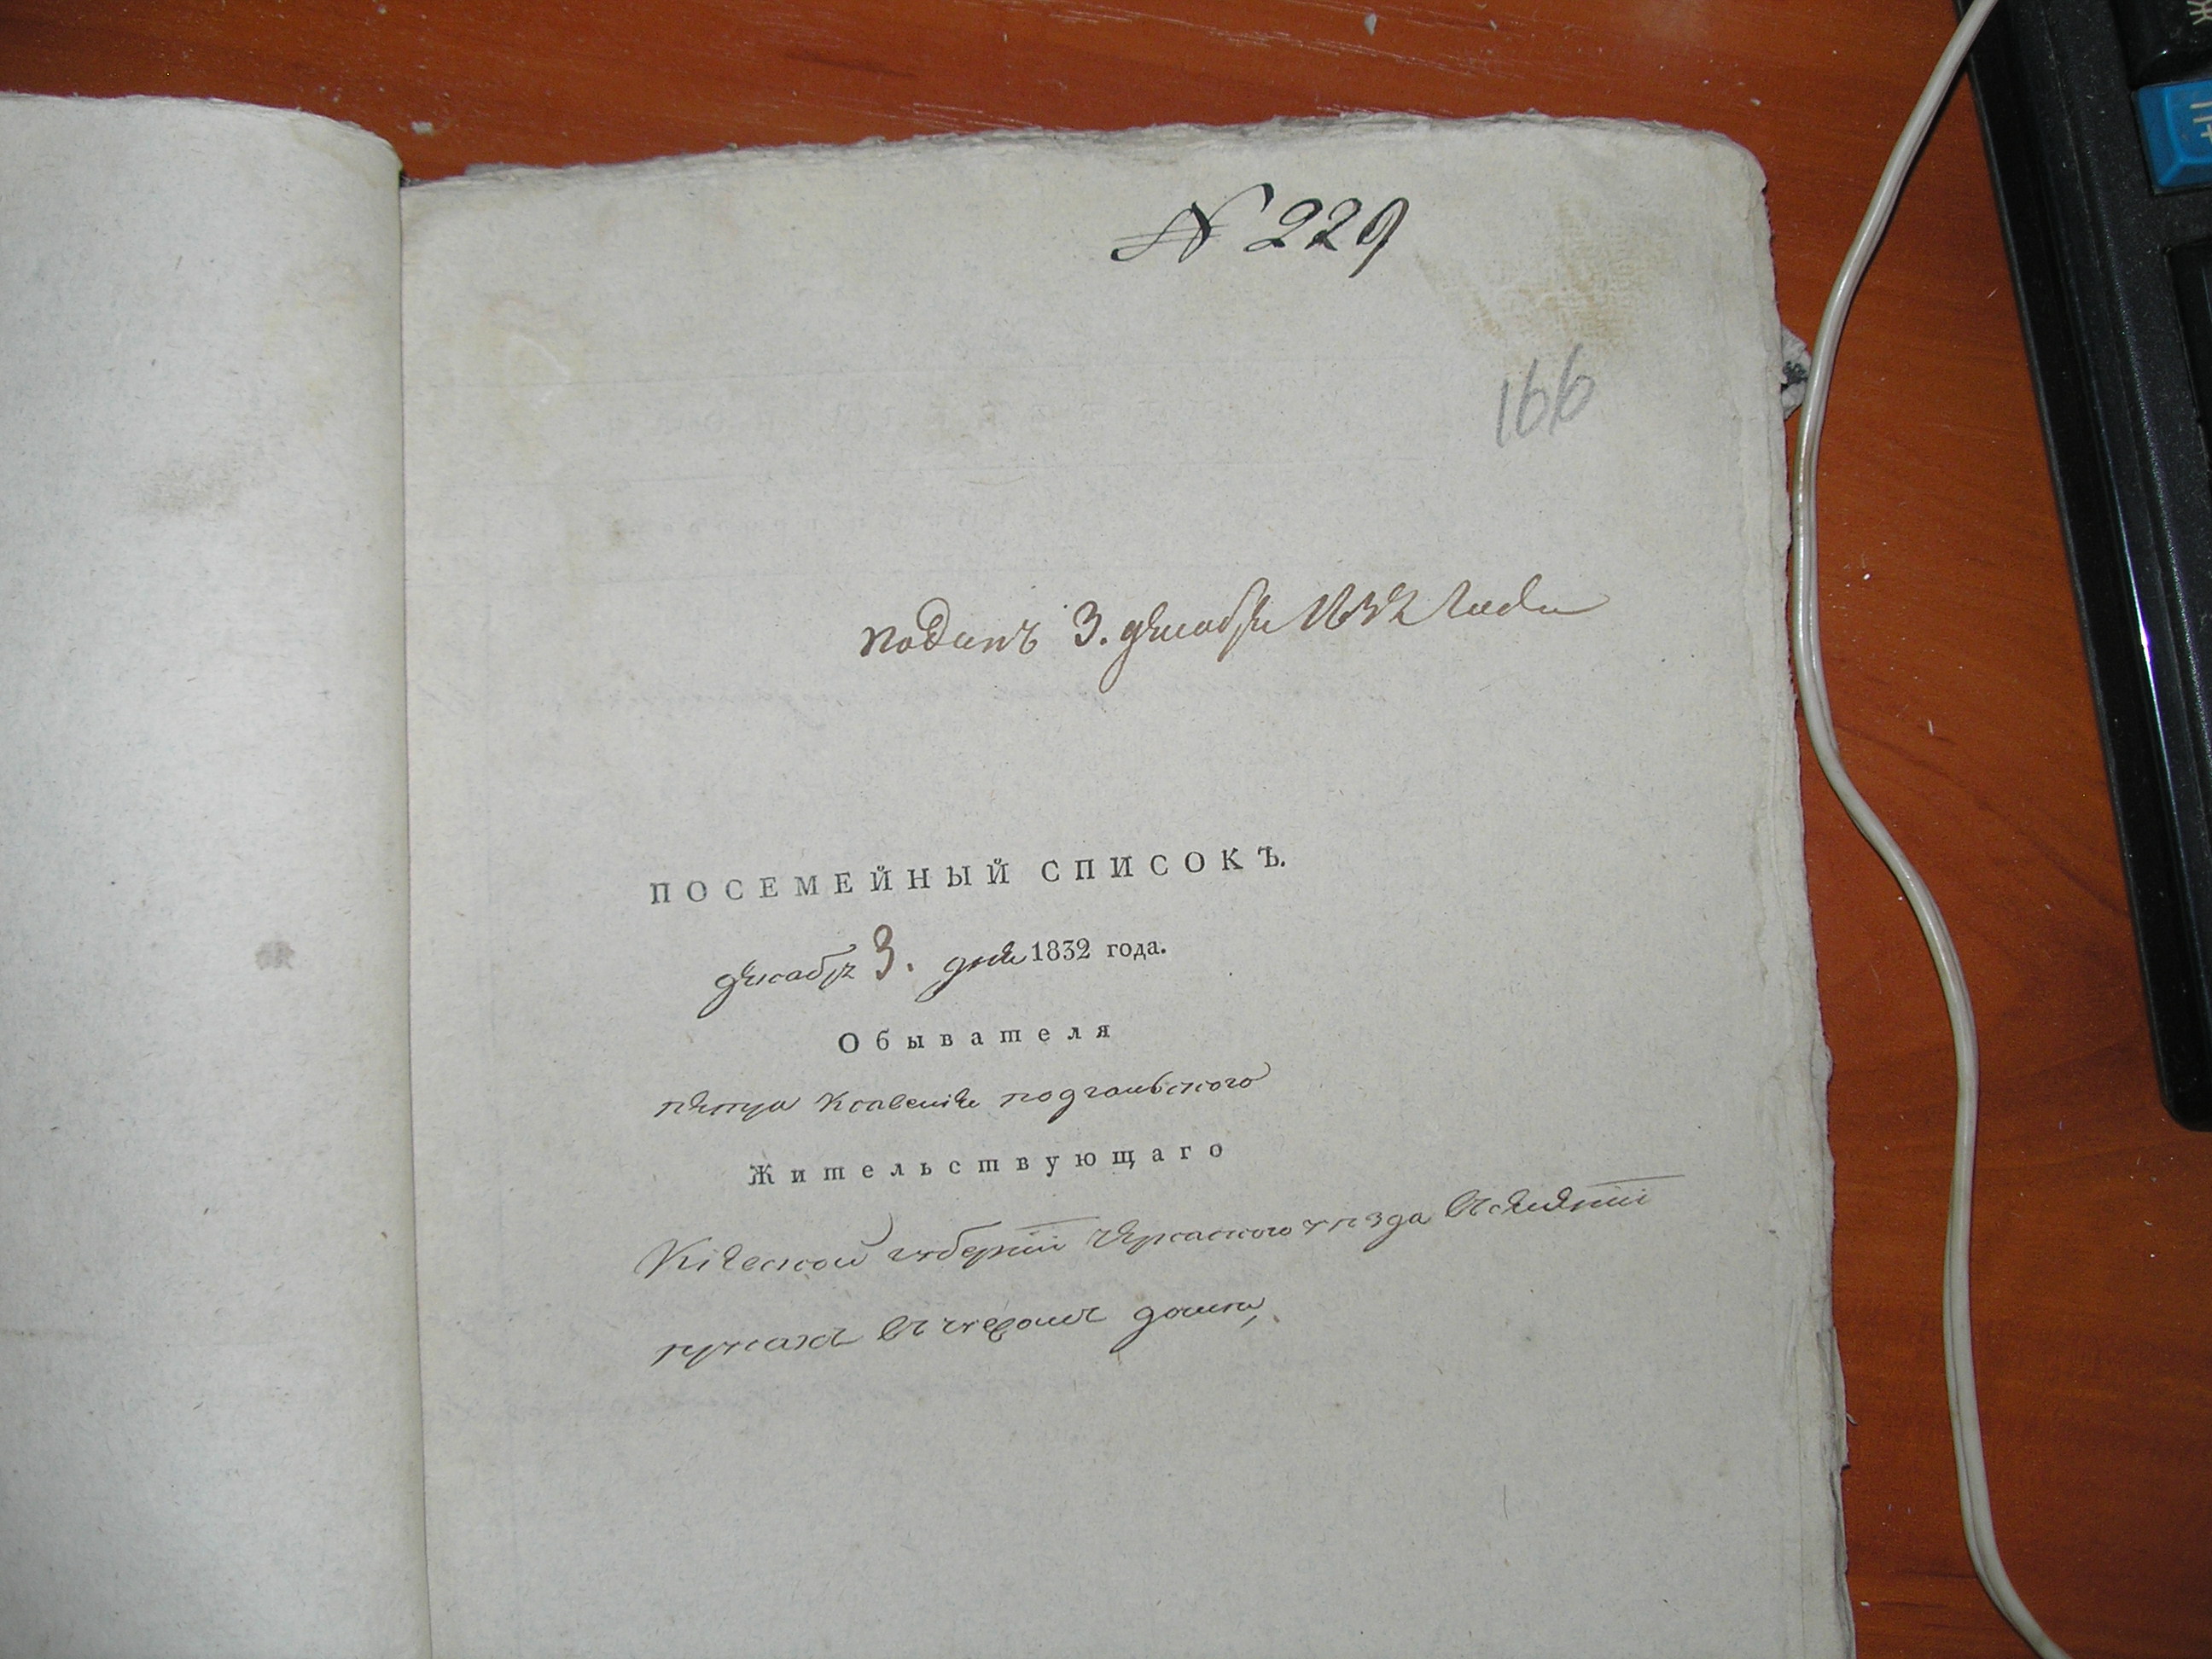 N 229
166
поданъ 3. декабря 1832 года
ПОСЕМЕЙНЫЙ СПИСОКЪ.
декабря 3. дня 1832 года.
Обывателя
Ксаверія подгаевского
Жительствующаго
Кіевской губерніи Черкаского уезда
въ чужомъ доми,